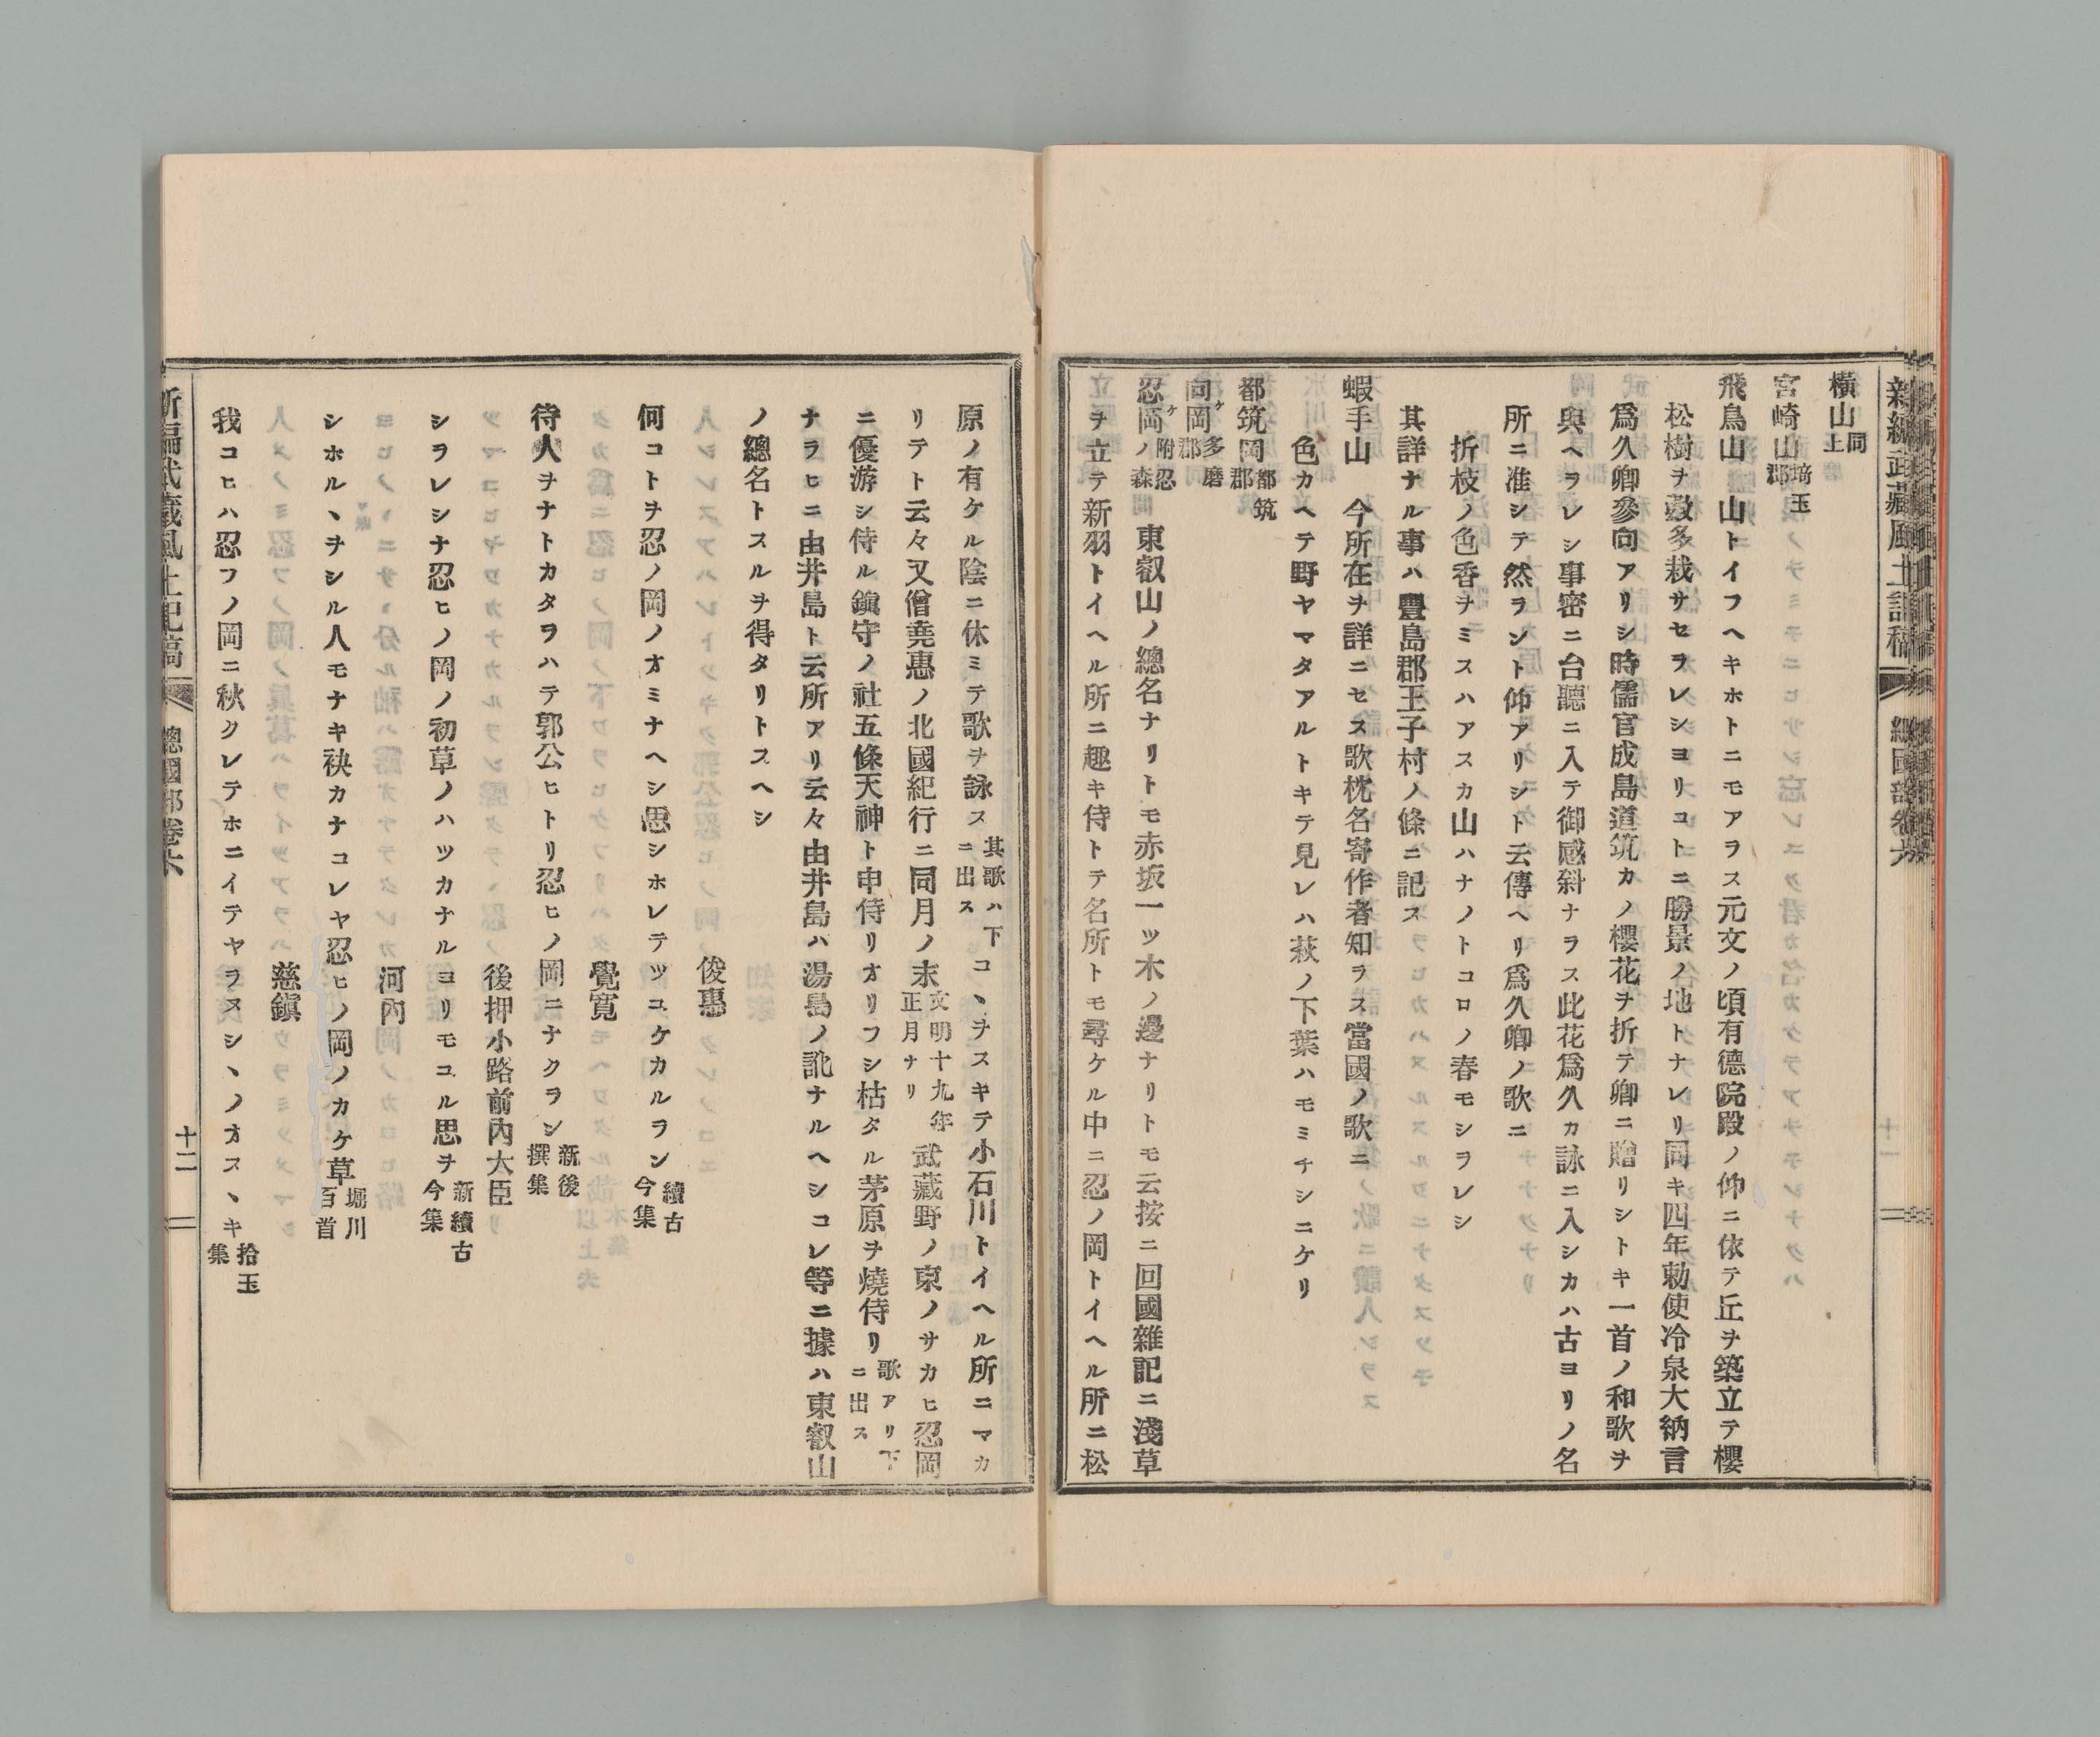 新編武藏風土記稿 總國部卷六
横山同上
宮崎山埼玉郡
飛鳥山 山トイフヘキホトニモアラス元文ノ頃有德院殿ノ仰ニ依テ丘ヲ築立テ櫻
松樹ヲ數多栽サセラレシヨリコトニ勝景ノ地トナレリ同キ四年勅使冷泉大納言
爲久卿參向アリシ時儒官成島道筑カノ櫻花ヲ折テ卿ニ贈リシトキ一首ノ和歌ヲ
與ヘラレシ事密ニ台聽ニ入テ御感斜ナラス此花爲久カ詠ニ入シカハ古ヨリノ名
所ニ准シテ然ラント仰アリシト云傳ヘリ爲久卿ノ歌ニ
折枝ノ色香ヲミスハアスカ山ハナノトコロノ春モシラレシ
其詳ナル事ハ豐島郡王子村ノ條ニ記ス
蝦手山 今所在ヲ詳ニセス歌枕名寄作者知ラス當國ノ歌ニ
色カヘテ野ヤマタアルトキテ見レハ萩ノ下葉ハモミチシニケリ
都筑岡都筑郡
向ケ岡多磨郡
忍ケ岡附忍ノ森 東叡山ノ總名ナリトモ赤坂一ツ木ノ邊ナリトモ云按ニ回國雜記ニ淺草
ヲ立テ新羽トイヘル所ニ趣キ侍トテ名所トモ尋ケル中ニ忍ノ岡トイヘル所ニ松
原ノ有ケル陰ニ休ミテ歌ヲ詠ス其歌ハ下ニ出スコヽヲスキテ小石川トイヘル所ニマカ
リテト云々又僧堯惠ノ北國紀行ニ同月ノ末文明十九年正月ナリ武藏野ノ東ノサカヒ忍岡
ニ優游シ侍ル鎭守ノ社五條天神ト申侍リオリフシ枯タル茅原ヲ燒侍リ歌アリ下ニ出ス
ナラヒニ由井島ト云所アリ云々由井島ハ湯島ノ訛ナルヘシコレ等ニ據ハ東叡山
ノ總名トスルヲ得タリトスヘシ
俊惠
何コトヲ忍ノ岡ノオミナヘシ思シホレテツユケカルラン續古今集
覺寬
待人ヲナトカタラハテ郭公ヒトリ忍ヒノ岡ニナクラン新後撰集
後押小路前內大臣
シラレシナ忍ヒノ岡ノ初草ノハツカナルヨリモユル思ヲ新續古今集
河內
シホルヽヲシル人モナキ袂カナコレヤ忍ヒノ岡ノカケ草堀川百首
慈鎭
我コヒハ忍フノ岡ニ秋クレテホニイテヤラヌシヽノオスヽキ拾玉集
新編武藏風土記稿 總國部卷六 十二